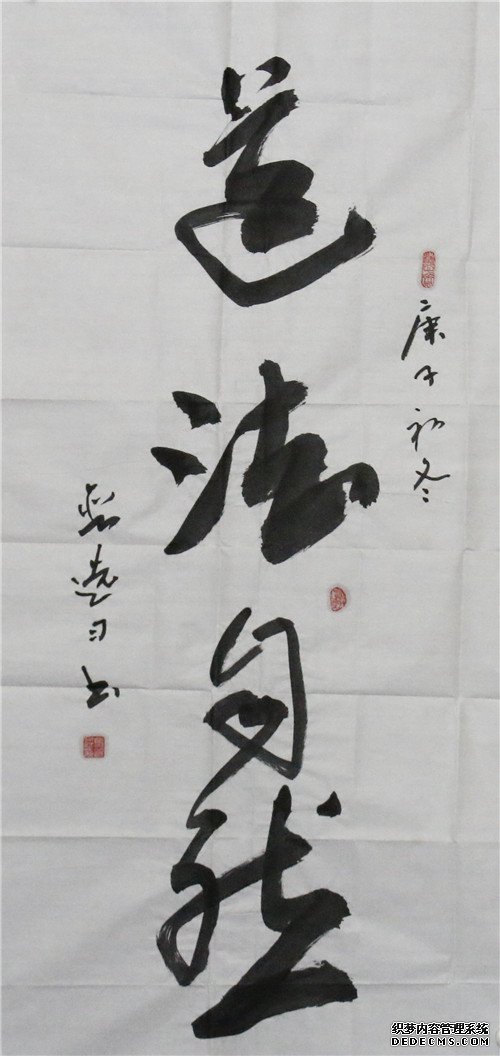 庚子初冬
道法自然
书
织梦内容管理系统
DEDECMS.COM